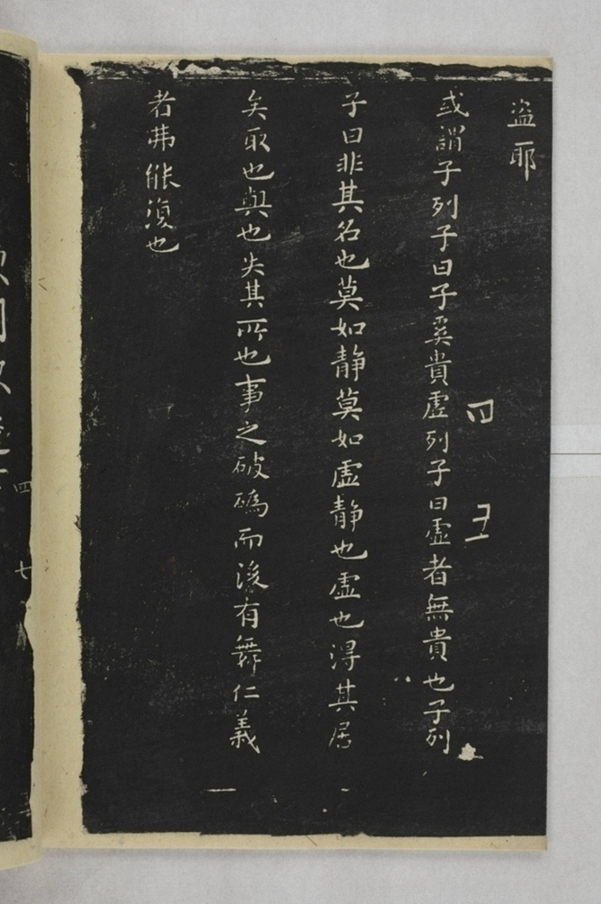 盗耶
或謂子列子曰子奚貴虛列子曰虛者無貴也子列
子曰非其名也莫如静莫如虛静也虛也淂其居
矣取也與也失其所也事之破䃣而後有舞仁義
者弗能復也
四 五
四 七